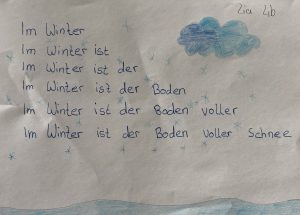 Lia 4b
Im Winter
Im Winter ist
Im Winter ist der
Im Winter ist der Boden
Im Winter ist der Boden voller
Im Winter ist der Boden voller Schnee